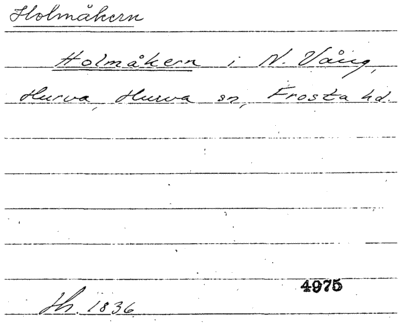 Holmåkern
Holmåkern i N. Vång,
Hurva, Hurva sn, Frosta hd.
4975
Hh. 1836